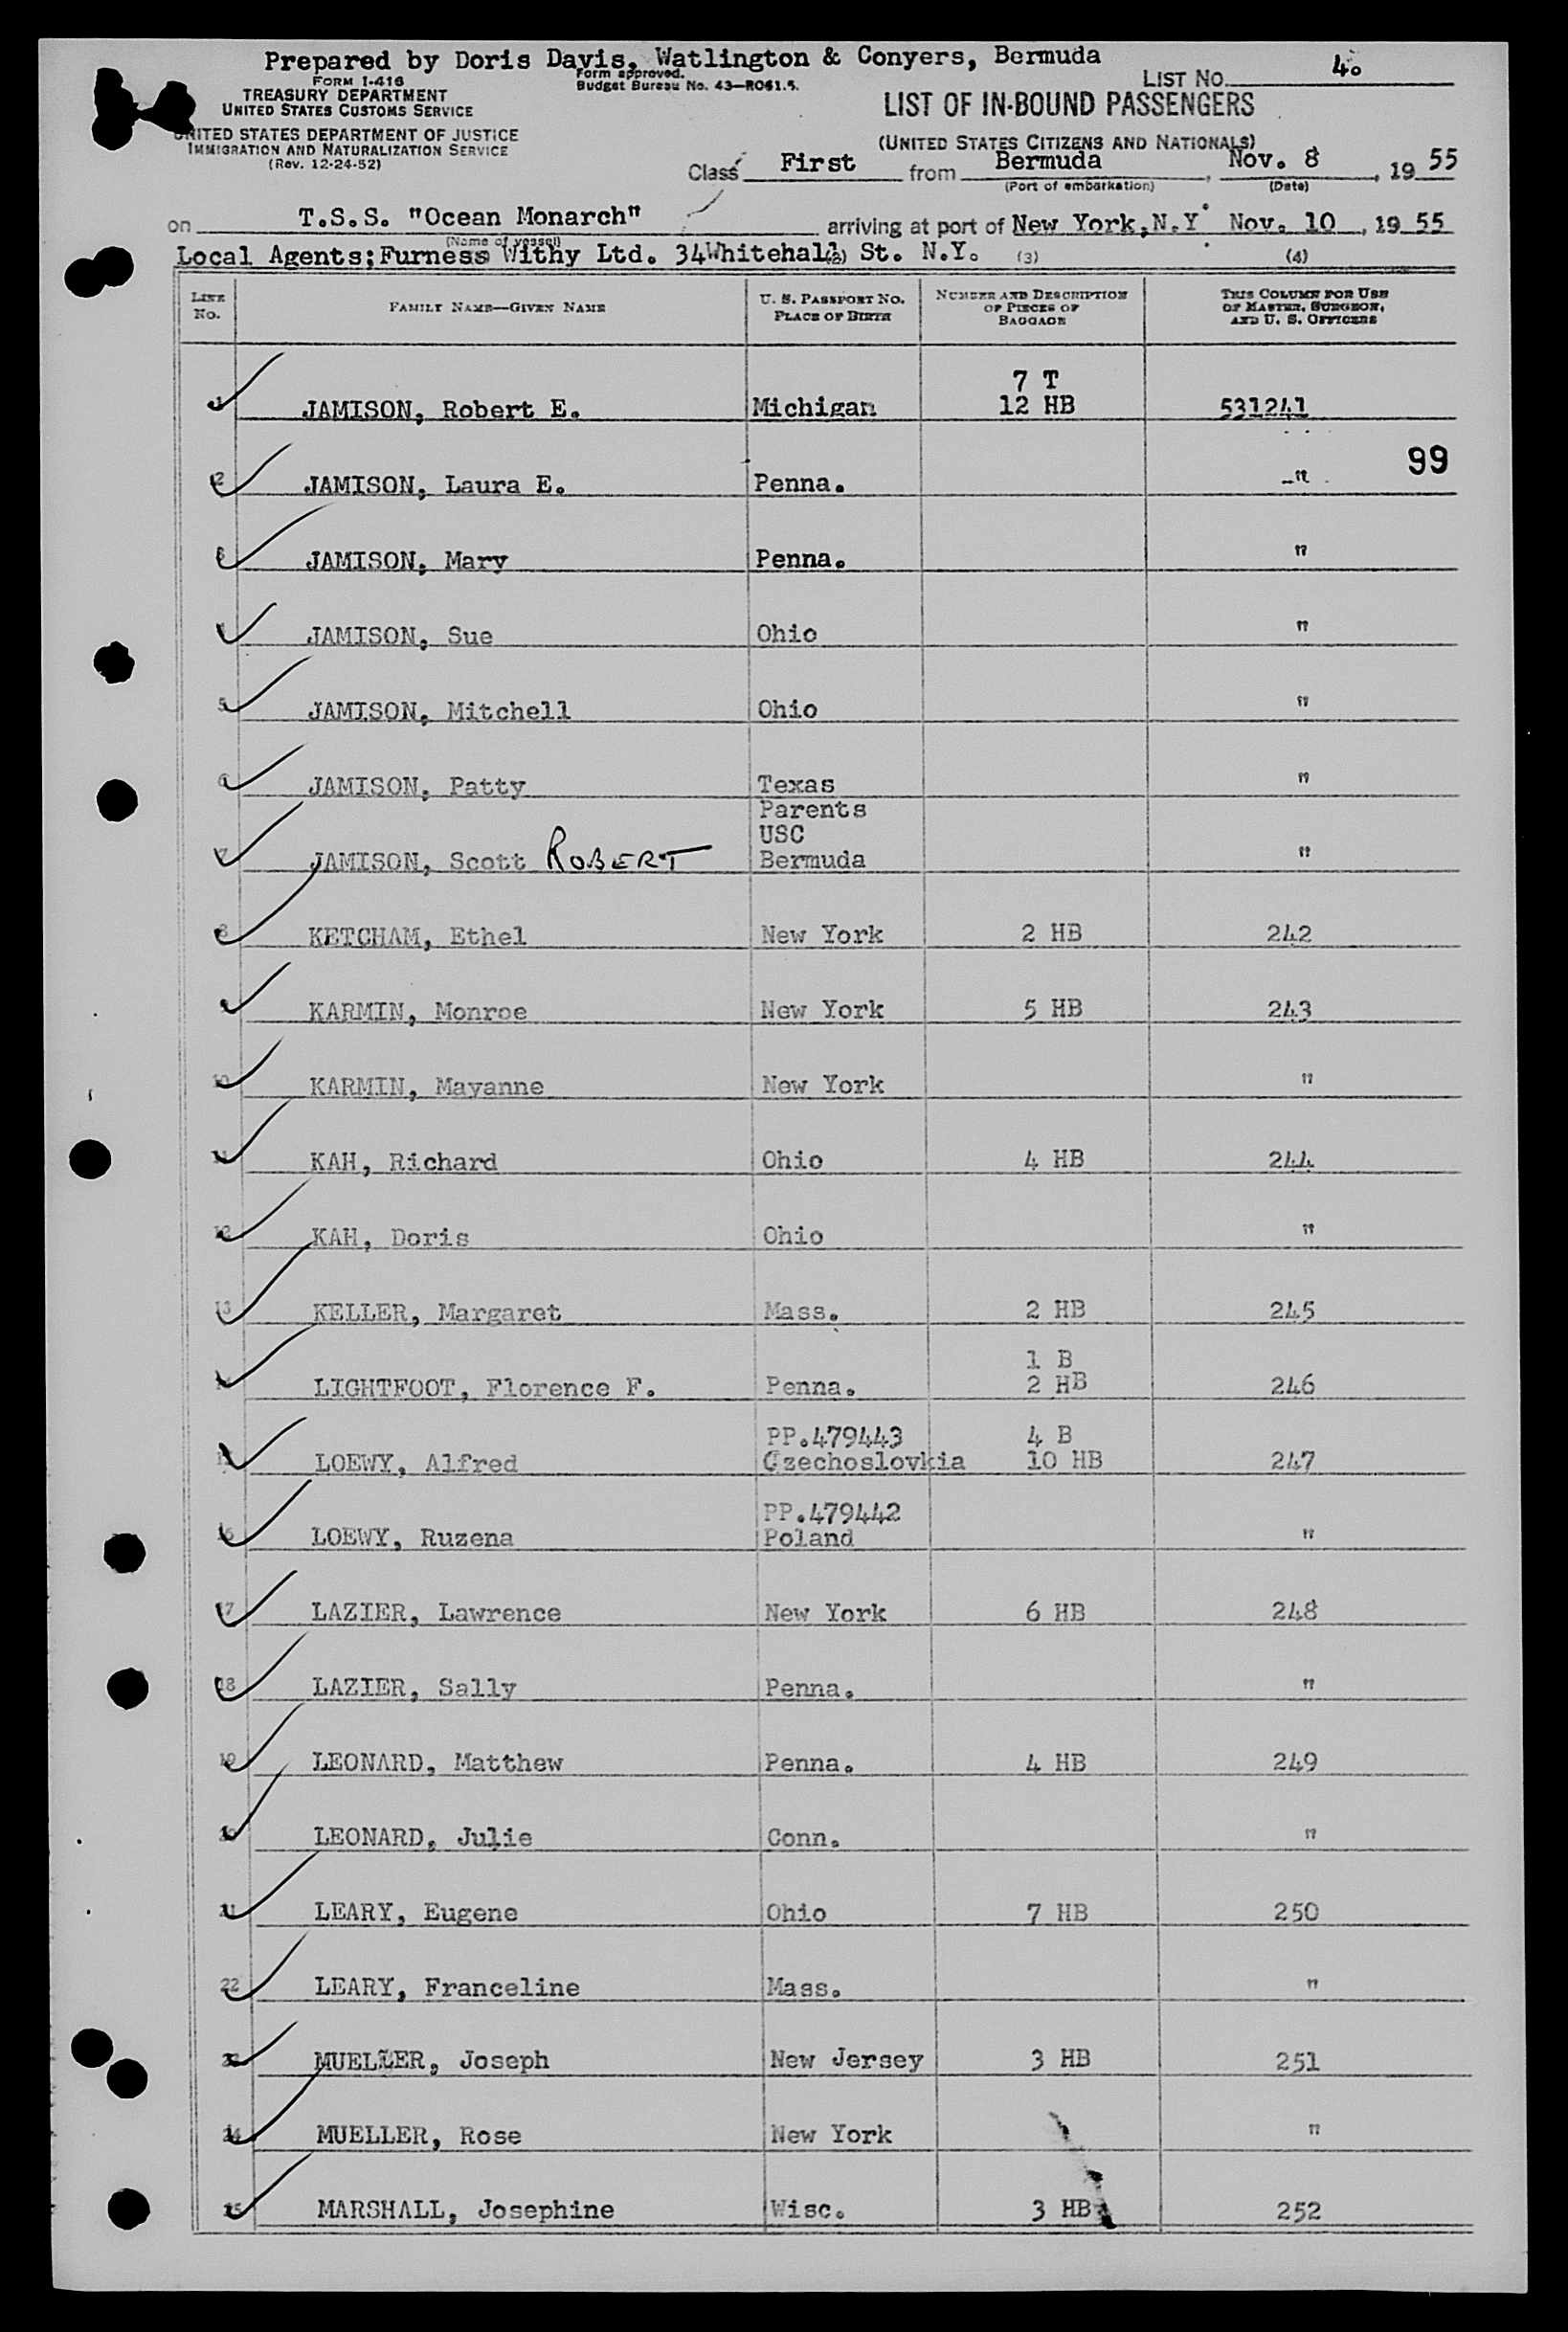 Prepared by Doris Davis, Watlington & Conyers, Bermuda
FORM I-416
TREASURY DEPARTMENT
UNITED STATES CUSTOMS SERVICE
UNITED STATES DEPARTMENT OF JUSTICE
IMMIGRATION AND NATURALIZATION SERVICE
(Rev. 12-24-52)
Form approved.
Budget Bureau No. 43—RO61.5.
LIST No. 4.
LIST OF IN-BOUND PASSENGERS
(UNITED STATES CITIZENS AND NATIONALS)
Class First from Bermuda, Nov. 8, 19 55
(Port of embarkation) (Date)
on T.S.S. "Ocean Monarch" arriving at port of New York, N.Y. Nov. 10, 19 55
(Name of vessel)
Local Agents; Furness Withy Ltd. 34 Whitehall St. N.Y.
(2) (3) (4)
LINE No. FAMILY NAME—GIVEN NAME U. S. PASSPORT No. PLACE OF BIRTH NUMBER AND DESCRIPTION OF PIECES OF BAGGAGE THIS COLUMN FOR USE OF MASTER, SURGEON, AND U. S. OFFICERS
7 T
1 JAMISON, Robert E. Michigan 12 HB 531241
99
2 JAMISON, Laura E. Penna. "
3 JAMISON, Mary Penna. "
4 JAMISON, Sue Ohio "
5 JAMISON, Mitchell Ohio "
6 JAMISON, Patty Texas "
Parents
USC
7 JAMISON, Scott ROBERT Bermuda "
8 KETCHAM, Ethel New York 2 HB 242
9 KARMIN, Monroe New York 5 HB 243
10 KARMIN, Mayanne New York "
11 KAH, Richard Ohio 4 HB 244
12 KAH, Doris Ohio "
13 KELLER, Margaret Mass. 2 HB 245
1 B
14 LIGHTFOOT, Florence F. Penna. 2 HB 246
PP.479443 4 B
15 LOEWY, Alfred Czechoslovkia 10 HB 247
PP.479442
16 LOEWY, Ruzena Poland "
17 LAZIER, Lawrence New York 6 HB 248
18 LAZIER, Sally Penna. "
19 LEONARD, Matthew Penna. 4 HB 249
20 LEONARD, Julie Conn. "
21 LEARY, Eugene Ohio 7 HB 250
22 LEARY, Franceline Mass. "
23 MUELLER, Joseph New Jersey 3 HB 251
24 MUELLER, Rose New York "
25 MARSHALL, Josephine Wisc. 3 HB 252